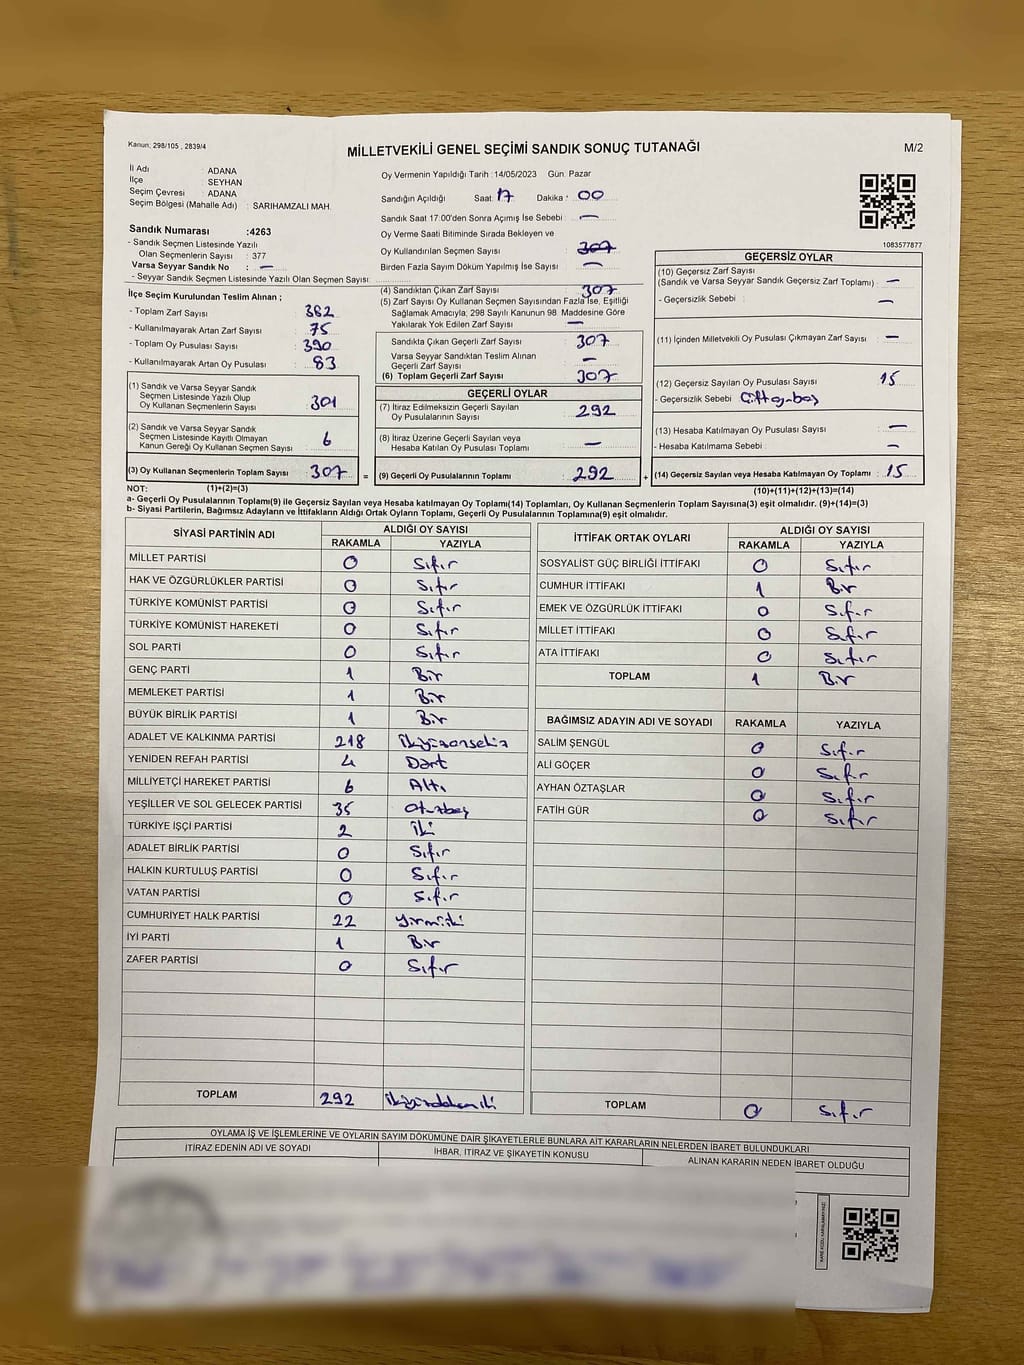 Kanun; 298/105 , 2839/4
MİLLETVEKİLİ GENEL SEÇİMİ SANDIK SONUÇ TUTANAĞI
M/2
İl Adı : ADANA
İlçe : SEYHAN
Seçim Çevresi : ADANA
Seçim Bölgesi (Mahalle Adı) : SARIHAMZALI MAH.
Sandık Numarası :4263
- Sandık Seçmen Listesinde Yazılı
Olan Seçmenlerin Sayısı : 377
Varsa Seyyar Sandık No : —
- Seyyar Sandık Seçmen Listesinde Yazılı Olan Seçmen Sayısı:
İlçe Seçim Kurulundan Teslim Alınan ;
- Toplam Zarf Sayısı : 382
- Kullanılmayarak Artan Zarf Sayısı : 75
- Toplam Oy Pusulası Sayısı : 390
- Kullanılmayarak Artan Oy Pusulası : 83
(1) Sandık ve Varsa Seyyar Sandık
Seçmen Listesinde Yazılı Olup
Oy Kullanan Seçmenlerin Sayısı : 301
(2) Sandık ve Varsa Seyyar Sandık
Seçmen Listesinde Kayıtlı Olmayan
Kanun Gereği Oy Kullanan Seçmen Sayısı : 6
(3) Oy Kullanan Seçmenlerin Toplam Sayısı : 307 =
Oy Vermenin Yapıldığı Tarih :14/05/2023 Gün: Pazar
Sandığın Açıldığı Saat: 17 Dakika : 00
Sandık Saat 17:00'den Sonra Açımış İse Sebebi : —
Oy Verme Saati Bitiminde Sırada Bekleyen ve
Oy Kullandırılan Seçmen Sayısı : 307
Birden Fazla Sayım Döküm Yapılmış İse Sayısı : —
(4) Sandıktan Çıkan Zarf Sayısı : 307
(5) Zarf Sayısı Oy Kullanan Seçmen Sayısından Fazla İse, Eşitliği
Sağlamak Amacıyla, 298 Sayılı Kanunun 98. Maddesine Göre
Yakılarak Yok Edilen Zarf Sayısı : —
Sandıkta Çıkan Geçerli Zarf Sayısı : 307
Varsa Seyyar Sandıktan Teslim Alınan
Geçerli Zarf Sayısı : —
(6) Toplam Geçerli Zarf Sayısı : 307
GEÇERLİ OYLAR
(7) İtiraz Edilmeksizin Geçerli Sayılan
Oy Pusulalarının Sayısı : 292
(8) İtiraz Üzerine Geçerli Sayılan veya
Hesaba Katılan Oy Pusulası Toplamı : —
(9) Geçerli Oy Pusulalarının Toplamı : 292 +
1083577877
GEÇERSİZ OYLAR
(10) Geçersiz Zarf Sayısı
(Sandık ve Varsa Seyyar Sandık Geçersiz Zarf Toplamı) : —
- Geçersizlik Sebebi : —
(11) İçinden Milletvekili Oy Pusulası Çıkmayan Zarf Sayısı : —
(12) Geçersiz Sayılan Oy Pusulası Sayısı : 15
- Geçersizlik Sebebi :
(13) Hesaba Katılmayan Oy Pusulası Sayısı : —
- Hesaba Katılmama Sebebi : —
(14) Geçersiz Sayılan veya Hesaba Katılmayan Oy Toplamı : 15
NOT: (1)+(2)=(3)
(10)+(11)+(12)+(13)=(14)
a- Geçerli Oy Pusulalarının Toplamı(9) ile Geçersiz Sayılan veya Hesaba katılmayan Oy Toplamı(14) Toplamları, Oy Kullanan Seçmenlerin Toplam Sayısına(3) eşit olmalıdır. (9)+(14)=(3)
b- Siyasi Partilerin, Bağımsız Adayların ve İttifakların Aldığı Ortak Oyların Toplamı, Geçerli Oy Pusulalarının Toplamına(9) eşit olmalıdır.
SİYASİ PARTİNİN ADI ALDIĞI OY SAYISI
RAKAMLA YAZIYLA
MİLLET PARTİSİ 0 Sıfır
HAK VE ÖZGÜRLÜKLER PARTİSİ 0 Sıfır
TÜRKİYE KOMÜNİST PARTİSİ 0 Sıfır
TÜRKİYE KOMÜNİST HAREKETİ 0 Sıfır
SOL PARTİ 0 Sıfır
GENÇ PARTİ 1 Bir
MEMLEKET PARTİSİ 1 Bir
BÜYÜK BİRLİK PARTİSİ 1 Bir
ADALET VE KALKINMA PARTİSİ 218 ikiyüzonsekiz
YENİDEN REFAH PARTİSİ 4 Dört
MİLLİYETÇİ HAREKET PARTİSİ 6 Altı
YEŞİLLER VE SOL GELECEK PARTİSİ 35 otuzbeş
TÜRKİYE İŞÇİ PARTİSİ 2 iki
ADALET BİRLİK PARTİSİ 0 Sıfır
HALKIN KURTULUŞ PARTİSİ 0 Sıfır
VATAN PARTİSİ 0 Sıfır
CUMHURİYET HALK PARTİSİ 22 yirmiiki
İYİ PARTİ 1 Bir
ZAFER PARTİSİ 0 Sıfır
TOPLAM 292 ikiyüzdoksaniki
İTTİFAK ORTAK OYLARI ALDIĞI OY SAYISI
RAKAMLA YAZIYLA
SOSYALİST GÜÇ BİRLİĞİ İTTİFAKI 0 Sıfır
CUMHUR İTTİFAKI 1 Bir
EMEK VE ÖZGÜRLÜK İTTİFAKI 0 Sıfır
MİLLET İTTİFAKI 0 Sıfır
ATA İTTİFAKI 0 Sıfır
TOPLAM 1 Bir
BAĞIMSIZ ADAYIN ADI VE SOYADI RAKAMLA YAZIYLA
SALİM ŞENGÜL 0 Sıfır
ALİ GÖÇER 0 Sıfır
AYHAN ÖZTAŞLAR 0 Sıfır
FATİH GÜR 0 Sıfır
TOPLAM 0 Sıfır
OYLAMA İŞ VE İŞLEMLERİNE VE OYLARIN SAYIM DÖKÜMÜNE DAİR ŞİKAYETLERLE BUNLARA AİT KARARLARIN NELERDEN İBARET BULUNDUKLARI
İTİRAZ EDENİN ADI VE SOYADI İHBAR, İTİRAZ VE ŞİKAYETİN KONUSU ALINAN KARARIN NEDEN İBARET OLDUĞU